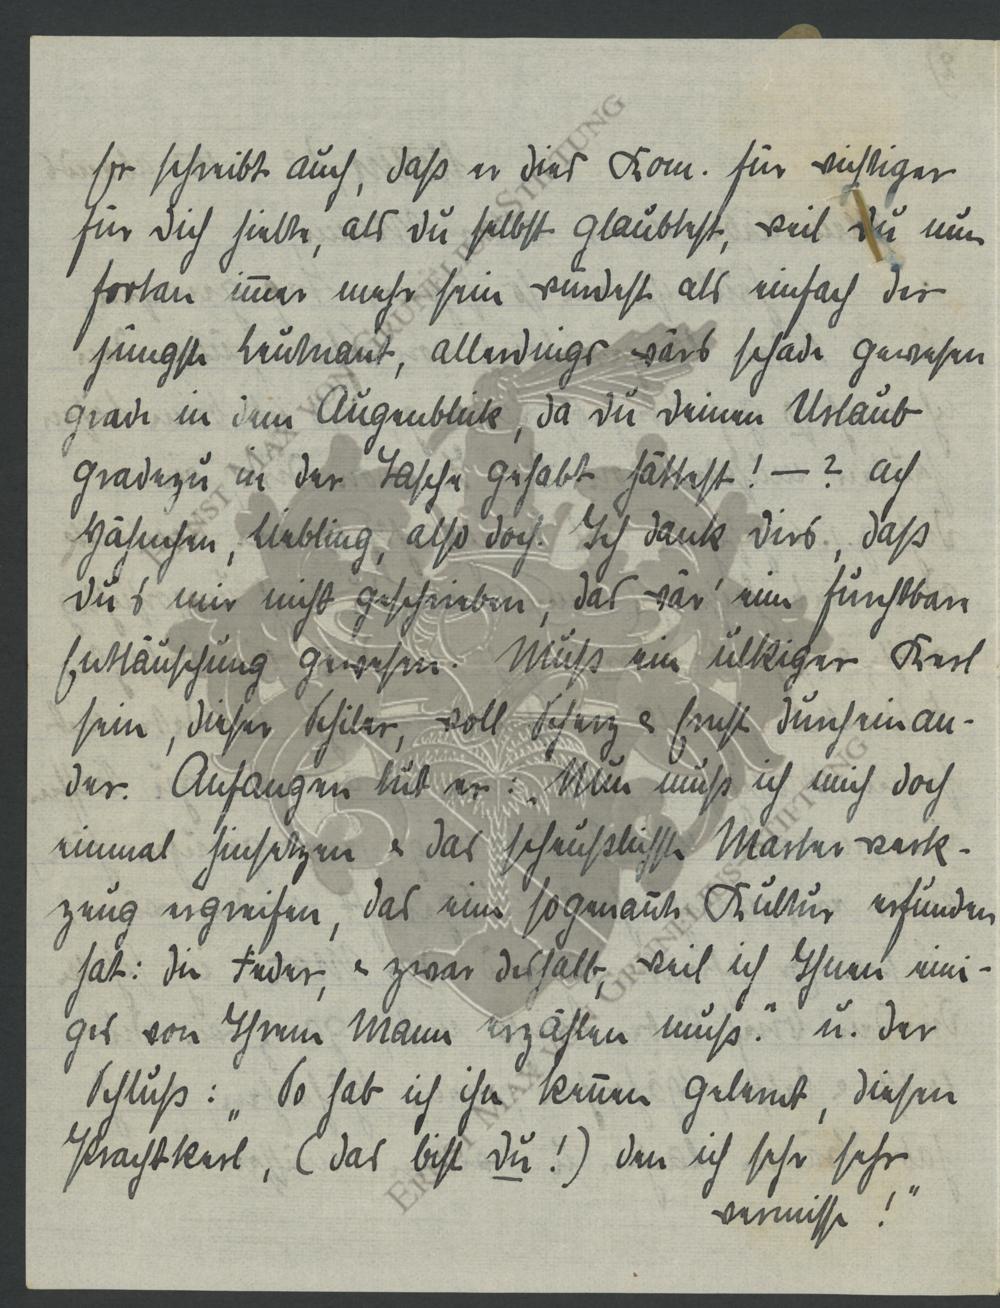 Er schreibt auch, daß er dies Kom. für wichtiger
für Dich hielte, als du selbst glaubtest, weil du nun
fortan im̅er mehr sein würdest als einfach der
jüngste Leutnant, allerdings wärs schade gewesen
grade in dem Augenblick, da du deinen Urlaub
gradezu in der Tasche gehabt hättest! — ? ach
Hähnchen, Liebling, also doch. Ich dank dirs, daß
du's mir nicht geschrieben, das wär' eine furchtbare
Enttäuschung gewesen. Muß ein ulkiger Kerl
sein, dieser Schiler, voll Scherz & Ernst durcheinan-
der. Anfangen tut er: „Nun muß ich mich doch
einmal hinsetzen & das scheußlichste Marterwerk-
zeug ergreifen, das eine sogenan̅te Kultur erfunden
hat: die Feder, & zwar deshalb, weil ich Ihnen eini-
ges von Ihrem Mann erzählen muß." u. der
Schluß: „So hab ich ihn ken̅en gelernt, diesen
Prachtkerl, (das bist du!) den ich sehr sehr
vermisse!"
ERNST MAX VON GRUNELIUS-STIFTUNG
ERNST MAX VON GRUNELIUS-STIFTUNG